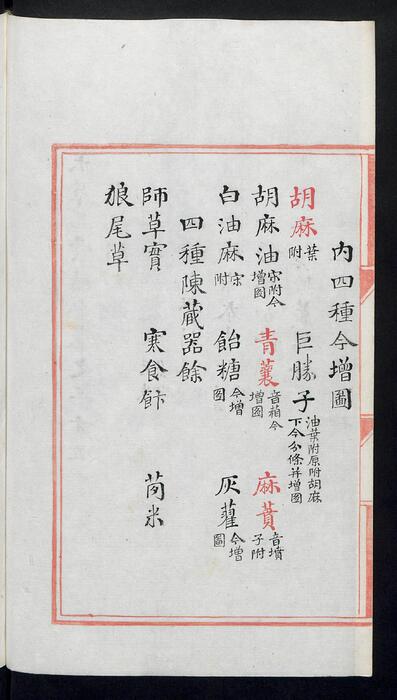 内四種今增圖
胡麻葉附 巨勝子油葉附原附胡麻下今分條并增圖
胡麻油宋附今增圖 青蘘音箱今增圖 麻蕡音墳子附
白油麻宋附 飴糖今增圖 灰藋今增圖
四種陳藏器餘
師草實 寒食飰 𦭚米
狼尾草